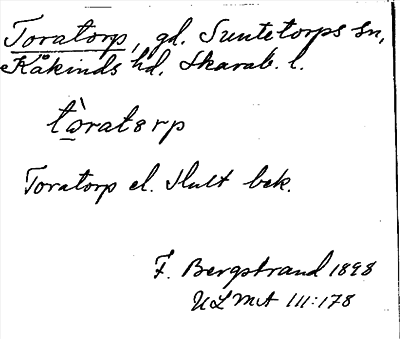 Toratorp, gd. Suntetorps sn,
Kåkinds hd. Skarab. l.
tòratorp
Toratorp el. Hult bek.
F. Bergstrand 1898
ULMA 111:178